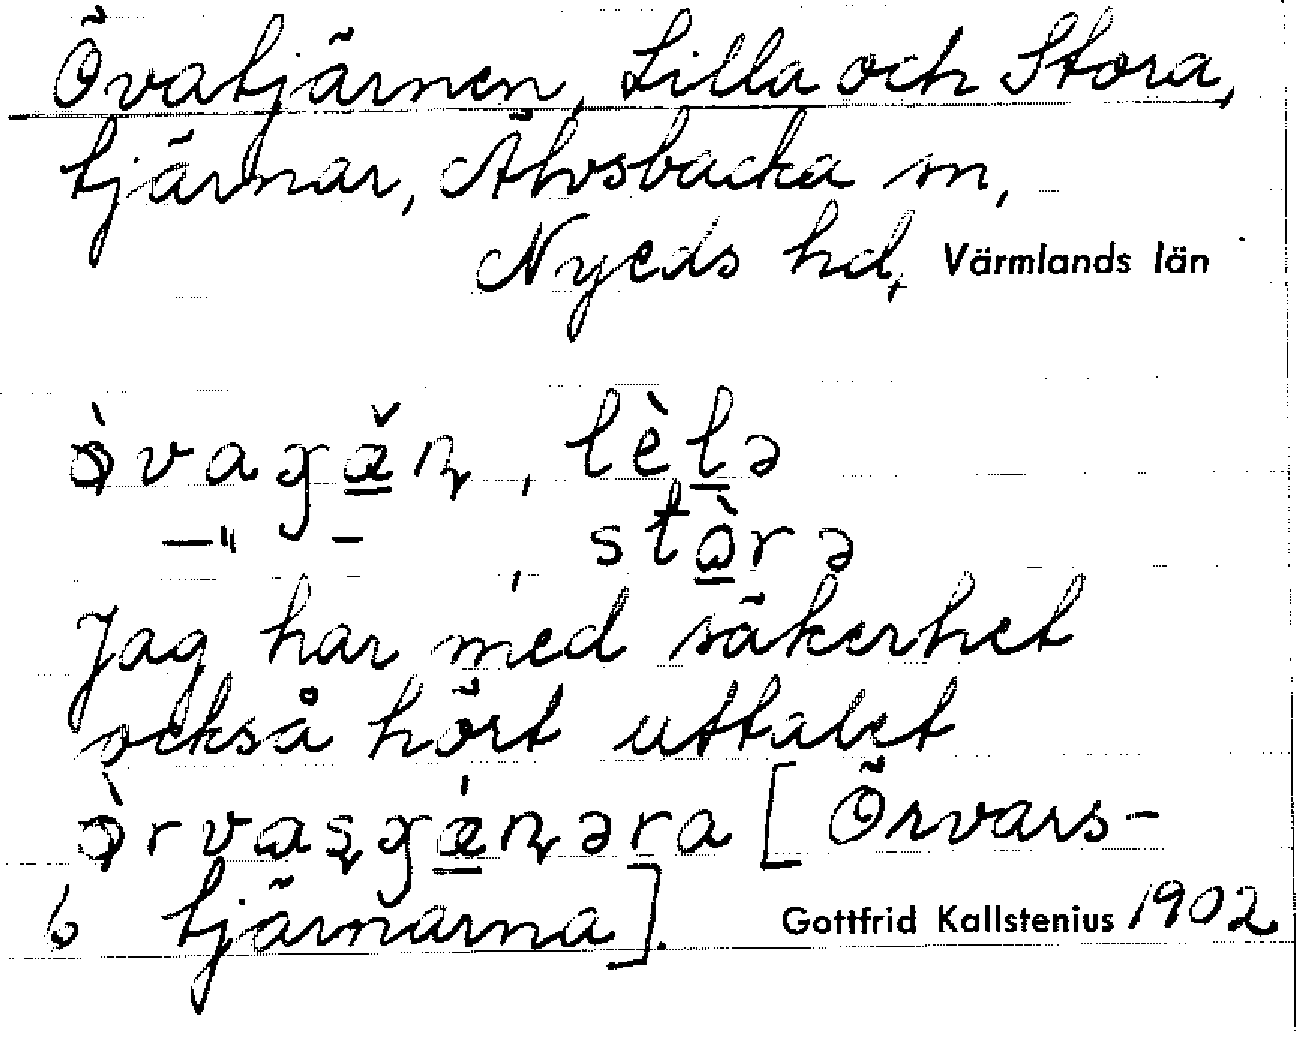 Övatjärnen, Lilla och Stora,
tjärnar, Älvsbacka sn,
Nyeds hd, Värmlands län
lèlə
—"—, stòrə
Jag har med säkerhet
också hört uttalet
[Örvars-
6 tjärnarna]. Gottfrid Kallstenius 1902